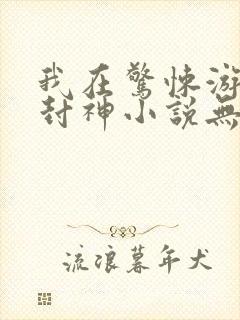 我在驚悚游
封神小說無
流浪暮年犬